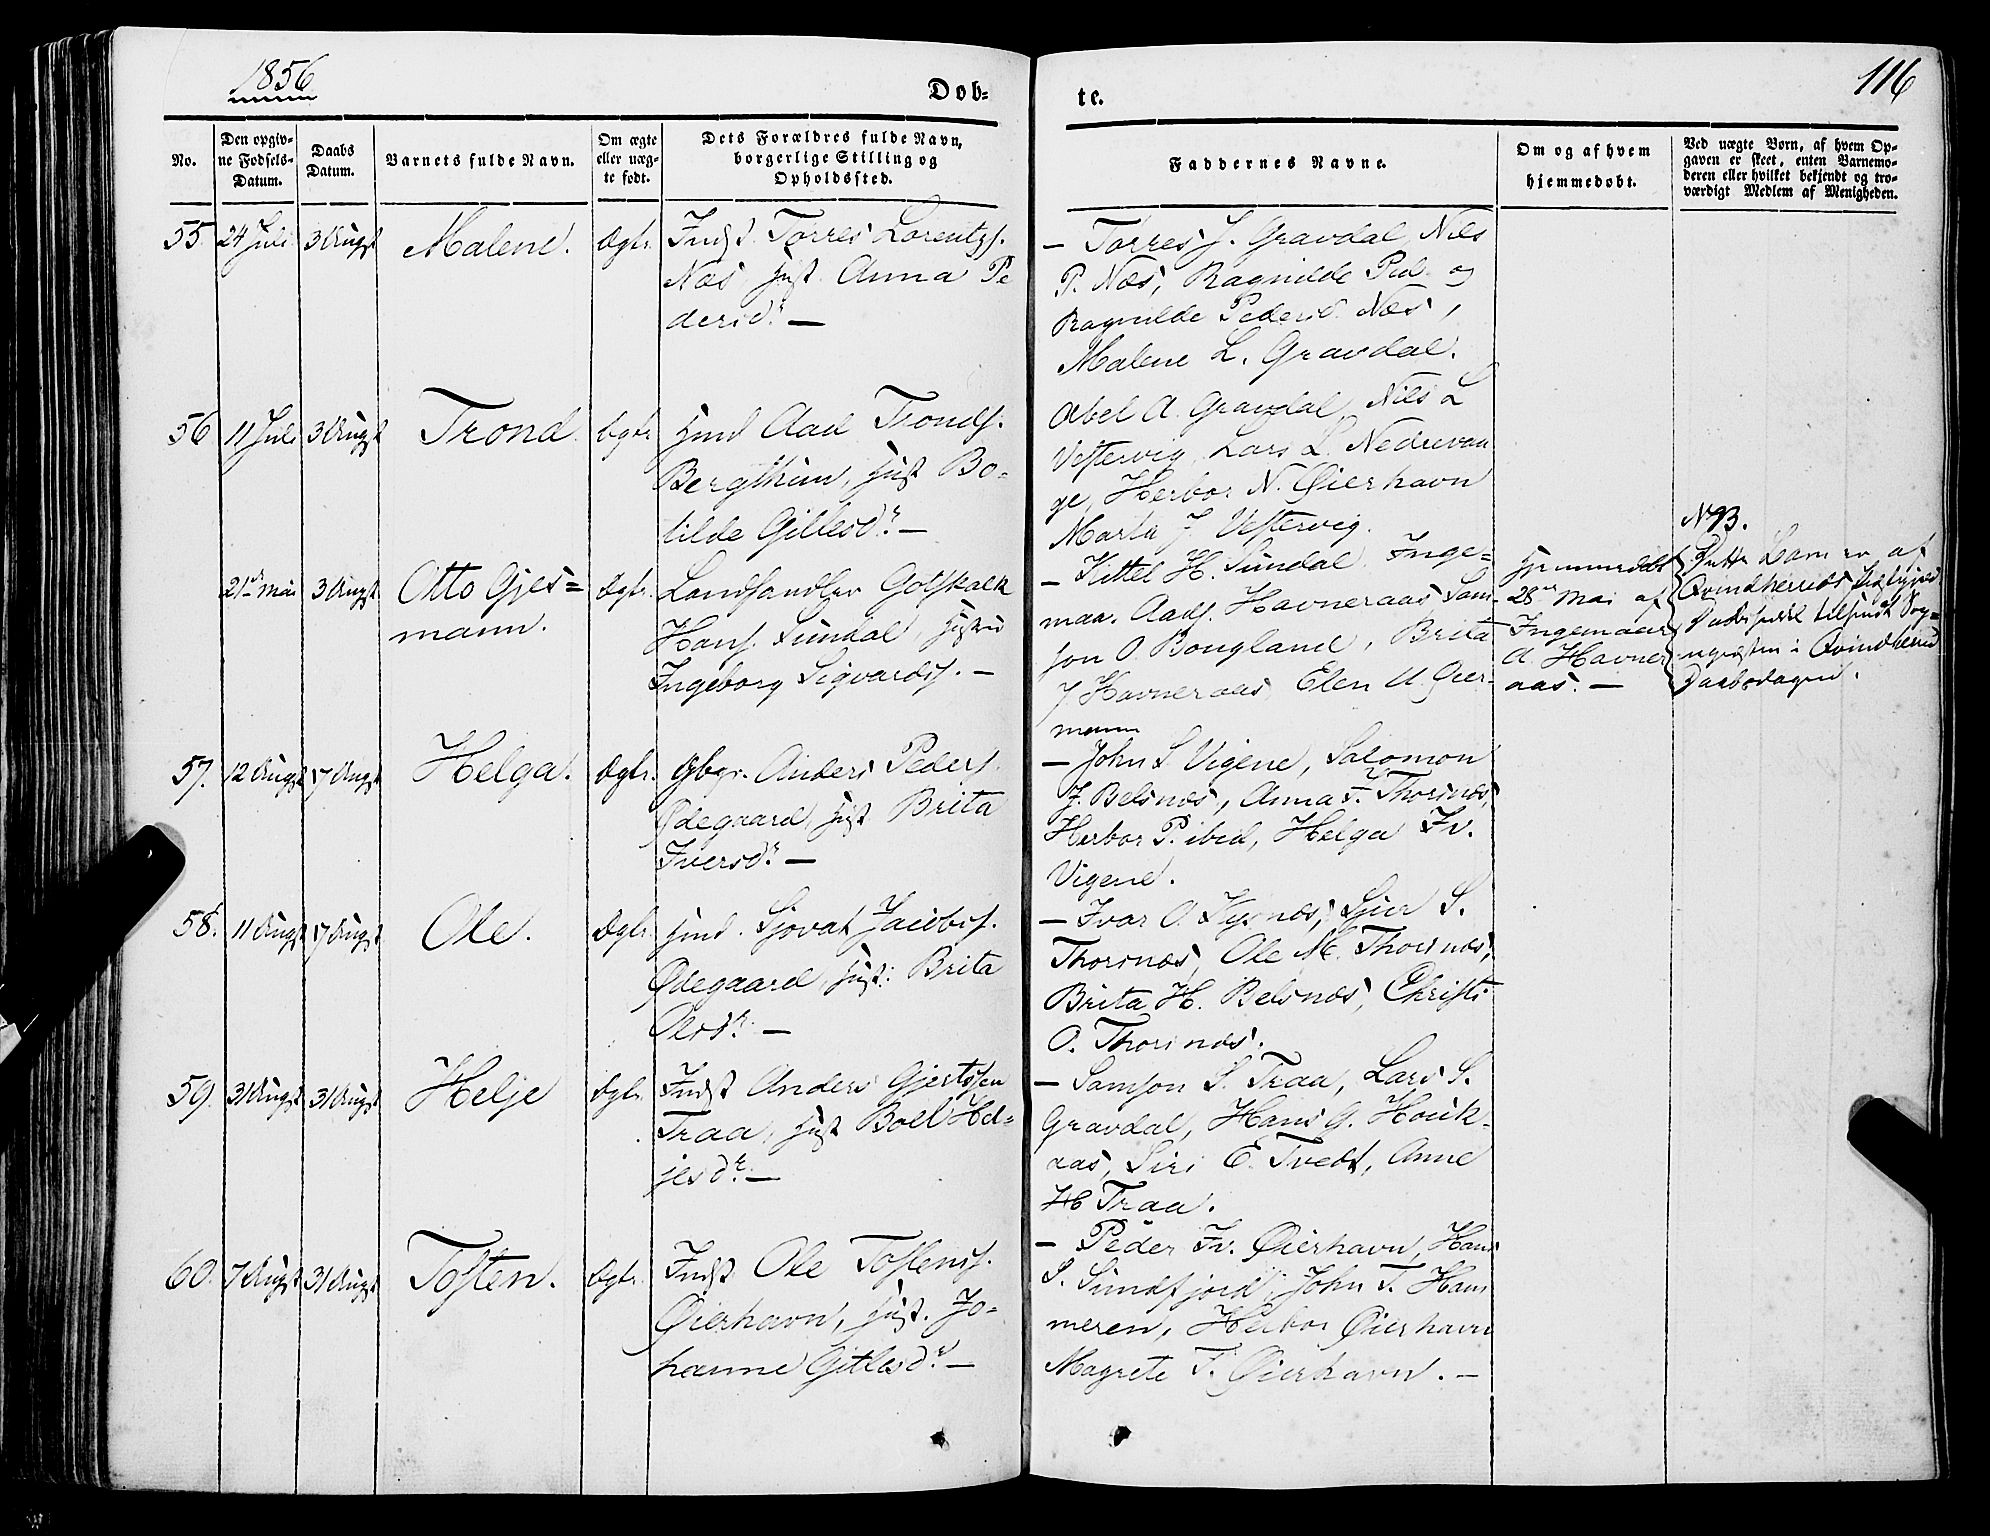 1856
116
Døb-
te.
No.
Den opgiv-
ne Fødsels-
Datum.
Daabs
Datum.
Barnets fulde Navn.
Om ægte
eller uæg-
te født.
Dets Forældres fulde Navn,
borgerlige Stilling og
Opholdssted.
Faddernes Navne.
Om og af hvem
hjemmedøbt.
Ved uægte Børn, af hvem Op-
gaven er skeet, enten Barnemo-
deren eller hvilket bekjendt og tro-
værdigt Medlem af Menigheden.
55 24 Juli 3 Augst Malene. Ægte.
Indst. Torres Lorentzs.
Næs Hust. Anna Pe
dersdr. —
— Torres J. Gravdal Nils
P. Næs, Ragnilde Ped. og
Ragnilde Pedersd. Næs,
Malene L. Gravdal.
56 11 Juli 3 Augst Trond. Ægte
Hmd Aad Tronds.
Bergthun, Hust Bo-
tilde Gillesdr. —
Abel A. Gravdal, Nils L
Vestervig, Lars L. Nedrevaa
ge, Herbor N. Øierhavn
Marta J. Vestervig.
21de Mai 3 Augst Otto Gjes=
mann. Ægte.
Landhandler Gotskalk
Hans. Sundal, Hustru
Ingeborg Sigvardsd. —
— Kittel H. Sundal. Inge=
maar Aads. Havneraas, Sam-
son O. Bougland, Brita
J Havneraas, Elen U. Gier-
mann
Hjemmedøbt
28de Mai af
Ingemaar
A. Havner
aas. —
NB.
Dette Barn er af
Qvindherreds Præstegjeld
Daabsdagen.
57. 12 Augst 17 Augst Helga. Ægte.
Gbgr. Anders Peders.
Ødegaard, Hust Brita
Iversdr. —
— John S Vigene, Salomon
J. Belsnæs, Anna T. Thorsnæs,
Herbor P. ibid, Helga Iv.
Vigene.
58. 11 Augst 17 Augst Ole. Ægte.
Hmd. Sjovat Jacobs.
Ødegaard, Hust: Brita
Olesdr. —
— Ivar O. Kysnæs, Sjur S.
Thorsnæs, Ole M. Thorsnæs,
Brita H. Belsnæs, Christi
O. Thorsnæs.
59. 31 Augst 31 Augst Helje Ægte.
Indst Anders Gjertssen
Traa, Hust Boel Hel=
jesdr. —
— Samson S. Traa, Lars S.
Gravdal, Hans G. Houk-
aas, Siri E. Tvedt, Anne
H Traa.
60. 7 Augst 31 Augst Tosten. Ægte.
Indst Ole Tostens.
Øierhavn, Hust. Jo-
hanne Gitlesdr. —
— Peder Iv. Øierhavn, Hans
S. Sundfjord, John T. Ham
meren, Herbor Øierhavn
Magrete T. Øierhavn. —